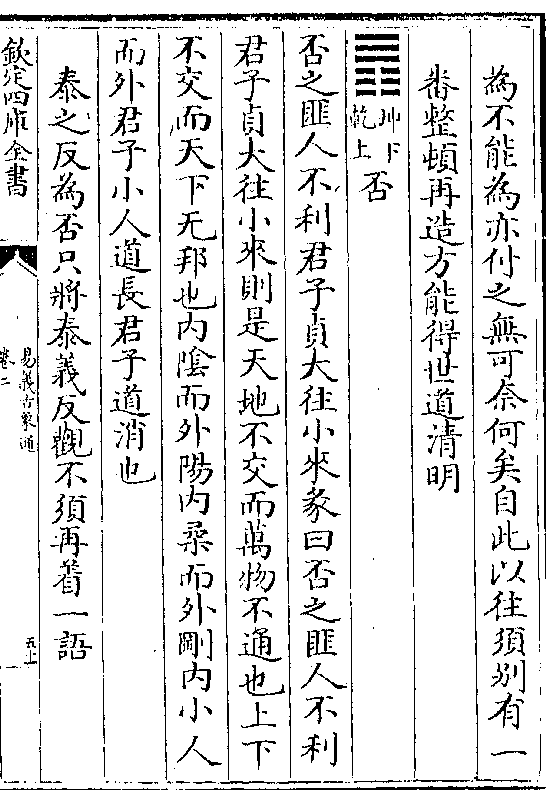 為不能為亦付之無可奈何矣自此以往須别有一
番整頓再造方能得世道清明
䷋坤下乾上否
否之匪人不利君子貞大往小來彖曰否之匪人不利
君子貞大往小來則是天地不交而萬物不通也上下
不交而天下无邦也内陰而外陽内柔而外剛内小人
而外君子小人道長君子道消也
泰之反為否只將泰義反觀不須再着一語
欽定四庫全書
易義古象通
卷二
五十